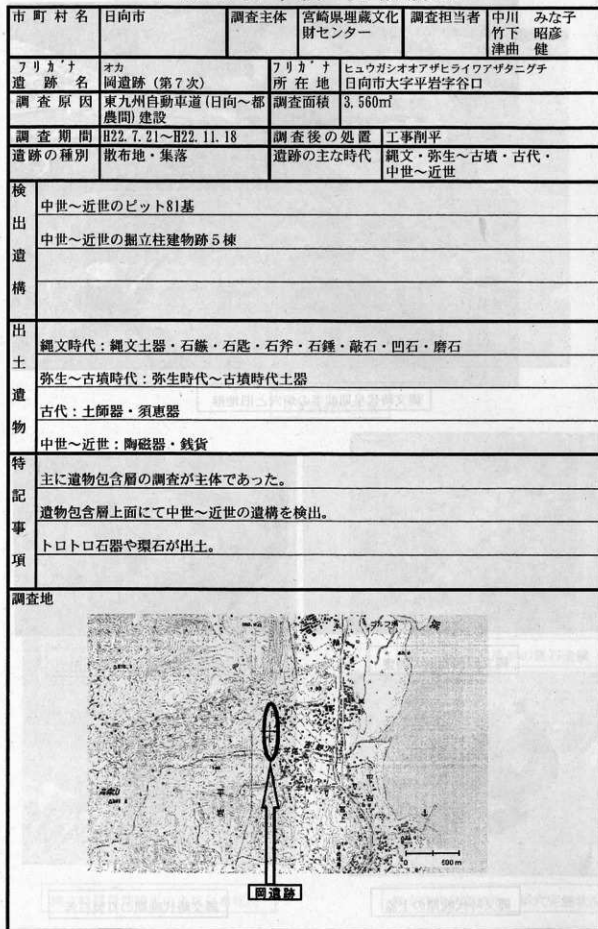 市町村名 日向市 調査主体 宮崎県埋蔵文化財センター 調査担当者 中川 みな子
竹下 昭彦
津曲 健
フリガナ オカ フリガナ ヒュウガシオオアザヒライワアザタニグチ
遺跡名 岡遺跡(第7次) 所在地 日向市大字平岩字谷口
調査原因 東九州自動車道(日向~都農間)建設 調査面積 3,560㎡
調査期間 H22.7.21~H22.11.18 調査後の処置 工事削平
遺跡の種別 散布地・集落 遺跡の主な時代 縄文・弥生~古墳・古代・
中世~近世
検出遺構
中世~近世のピット81基
中世~近世の掘立柱建物跡5棟
出土遺物
縄文時代:縄文土器・石鏃・石匙・石斧・石錘・敲石・凹石・磨石
弥生~古墳時代:弥生時代~古墳時代土器
古代:土師器・須恵器
中世~近世:陶磁器・銭貨
特記事項
主に遺物包含層の調査が主体であった。
遺物包含層上面にて中世~近世の遺構を検出。
トロトロ石器や環石が出土。
調査地
0 500m
岡遺跡